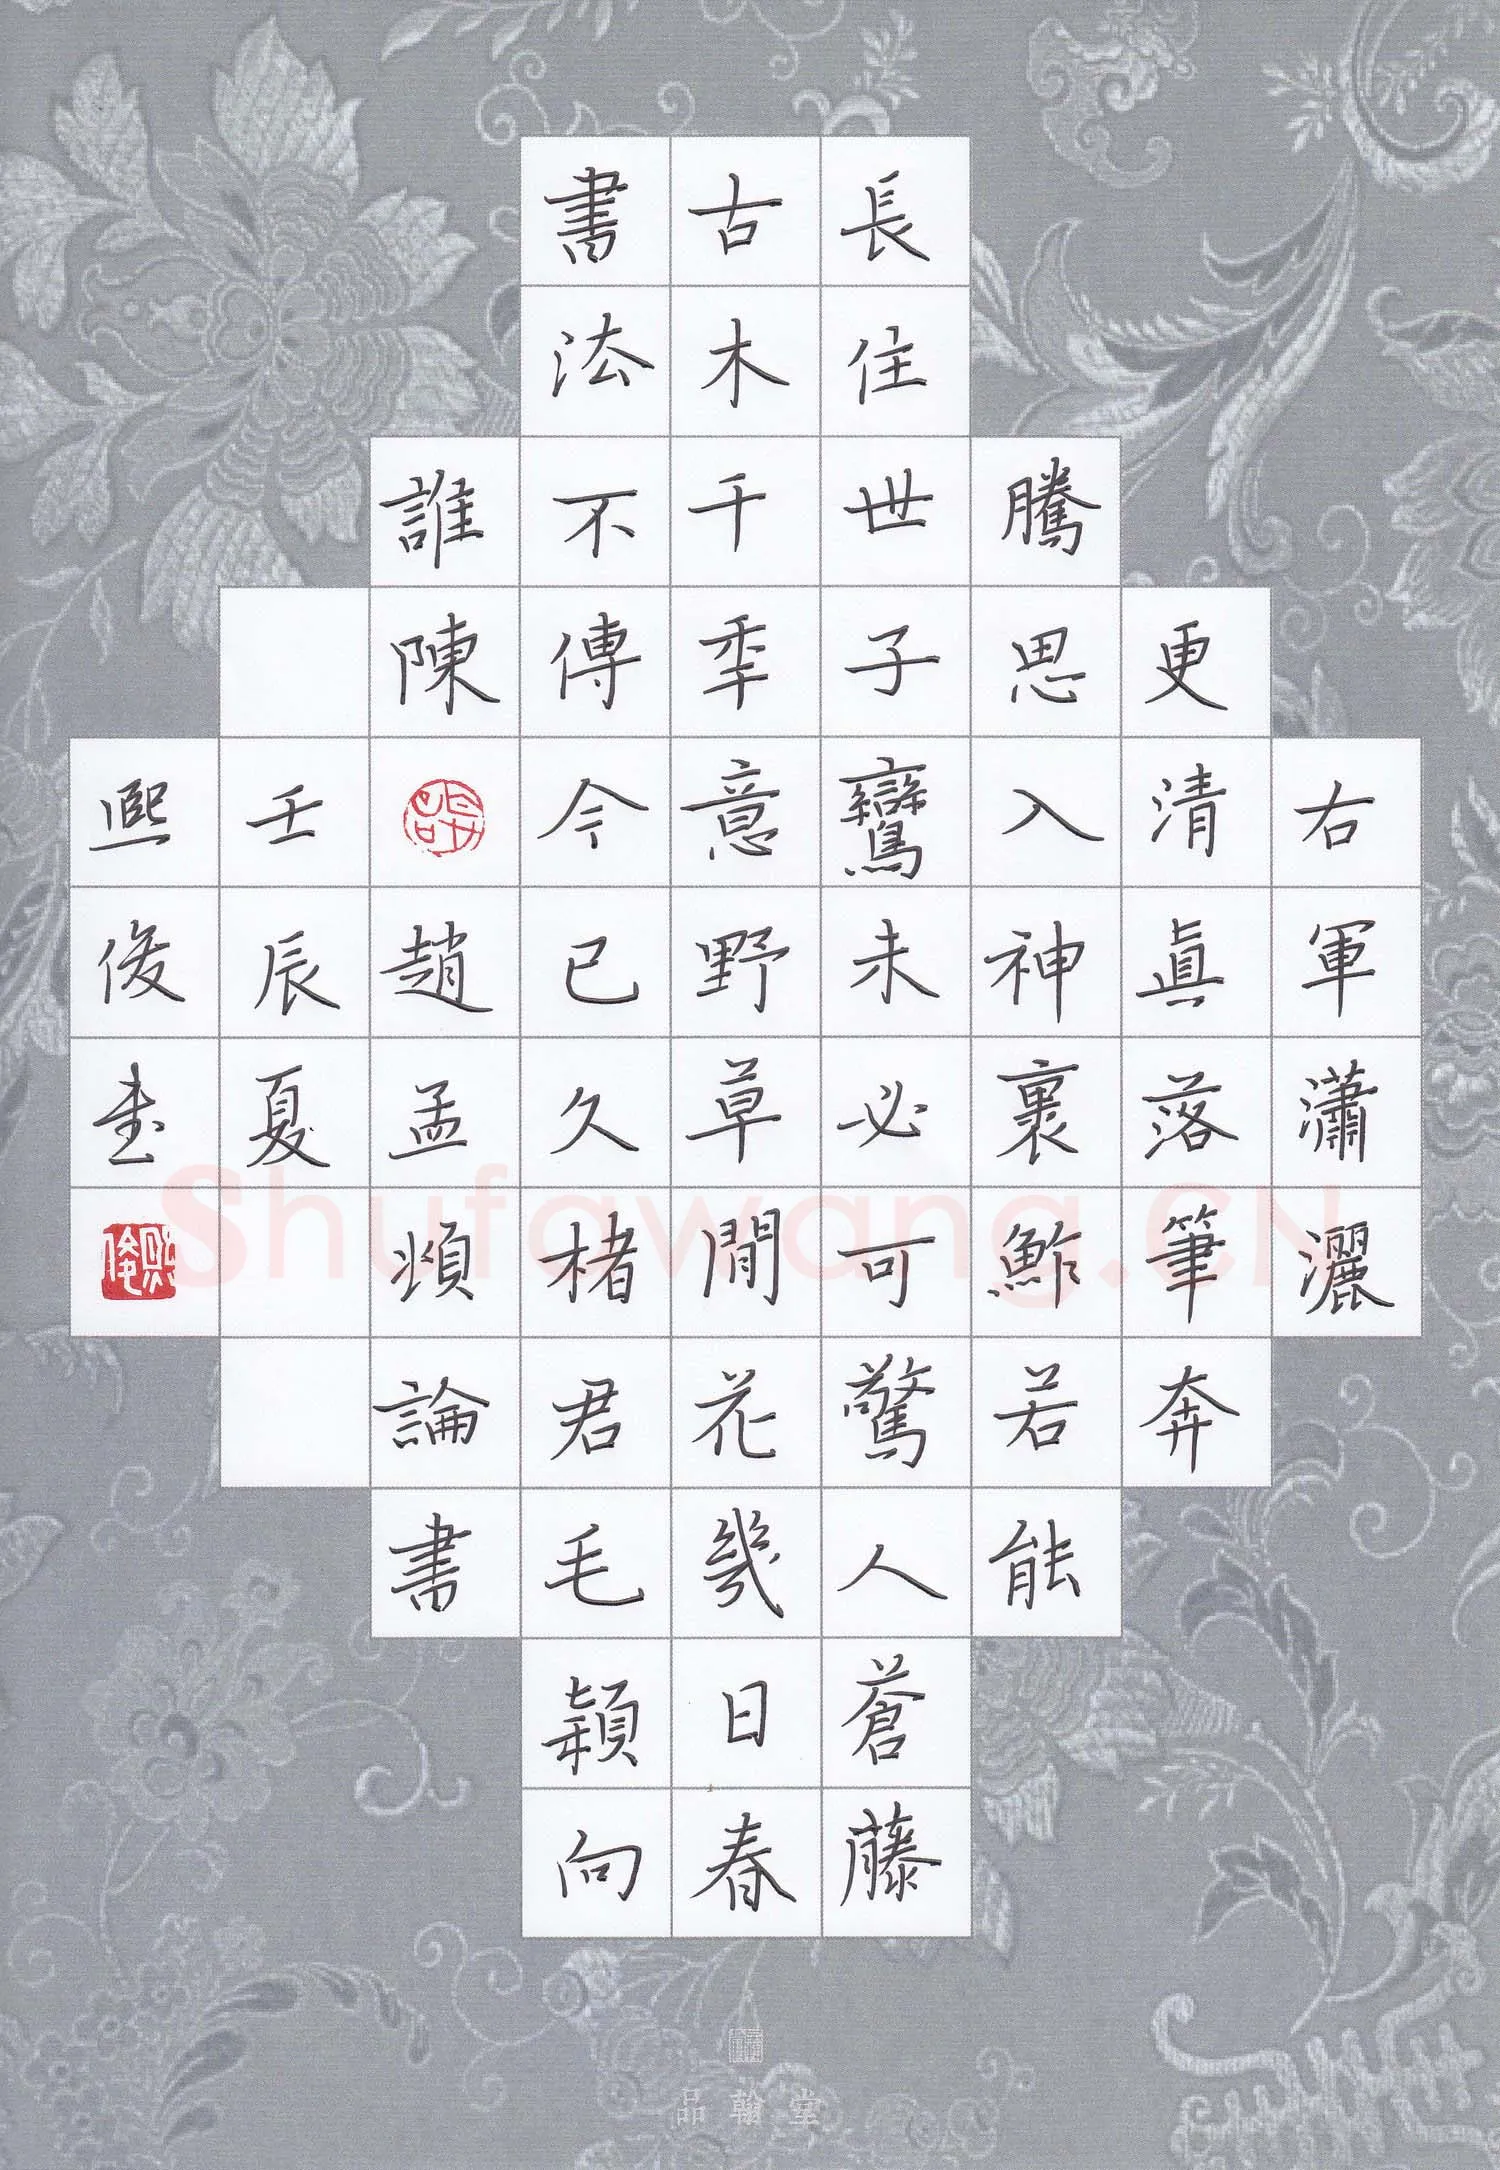 右軍瀟灑
更清眞落筆奔
騰思入神裹鮓若能
長住世子鸞未必可驚人蒼藤
古木千年意野草間花幾日春
書法不傳今已久楮君毛穎向
誰陳趙孟頫論書
壬辰夏
熙俊書
熙俊
Shufawang.CN
品翰堂